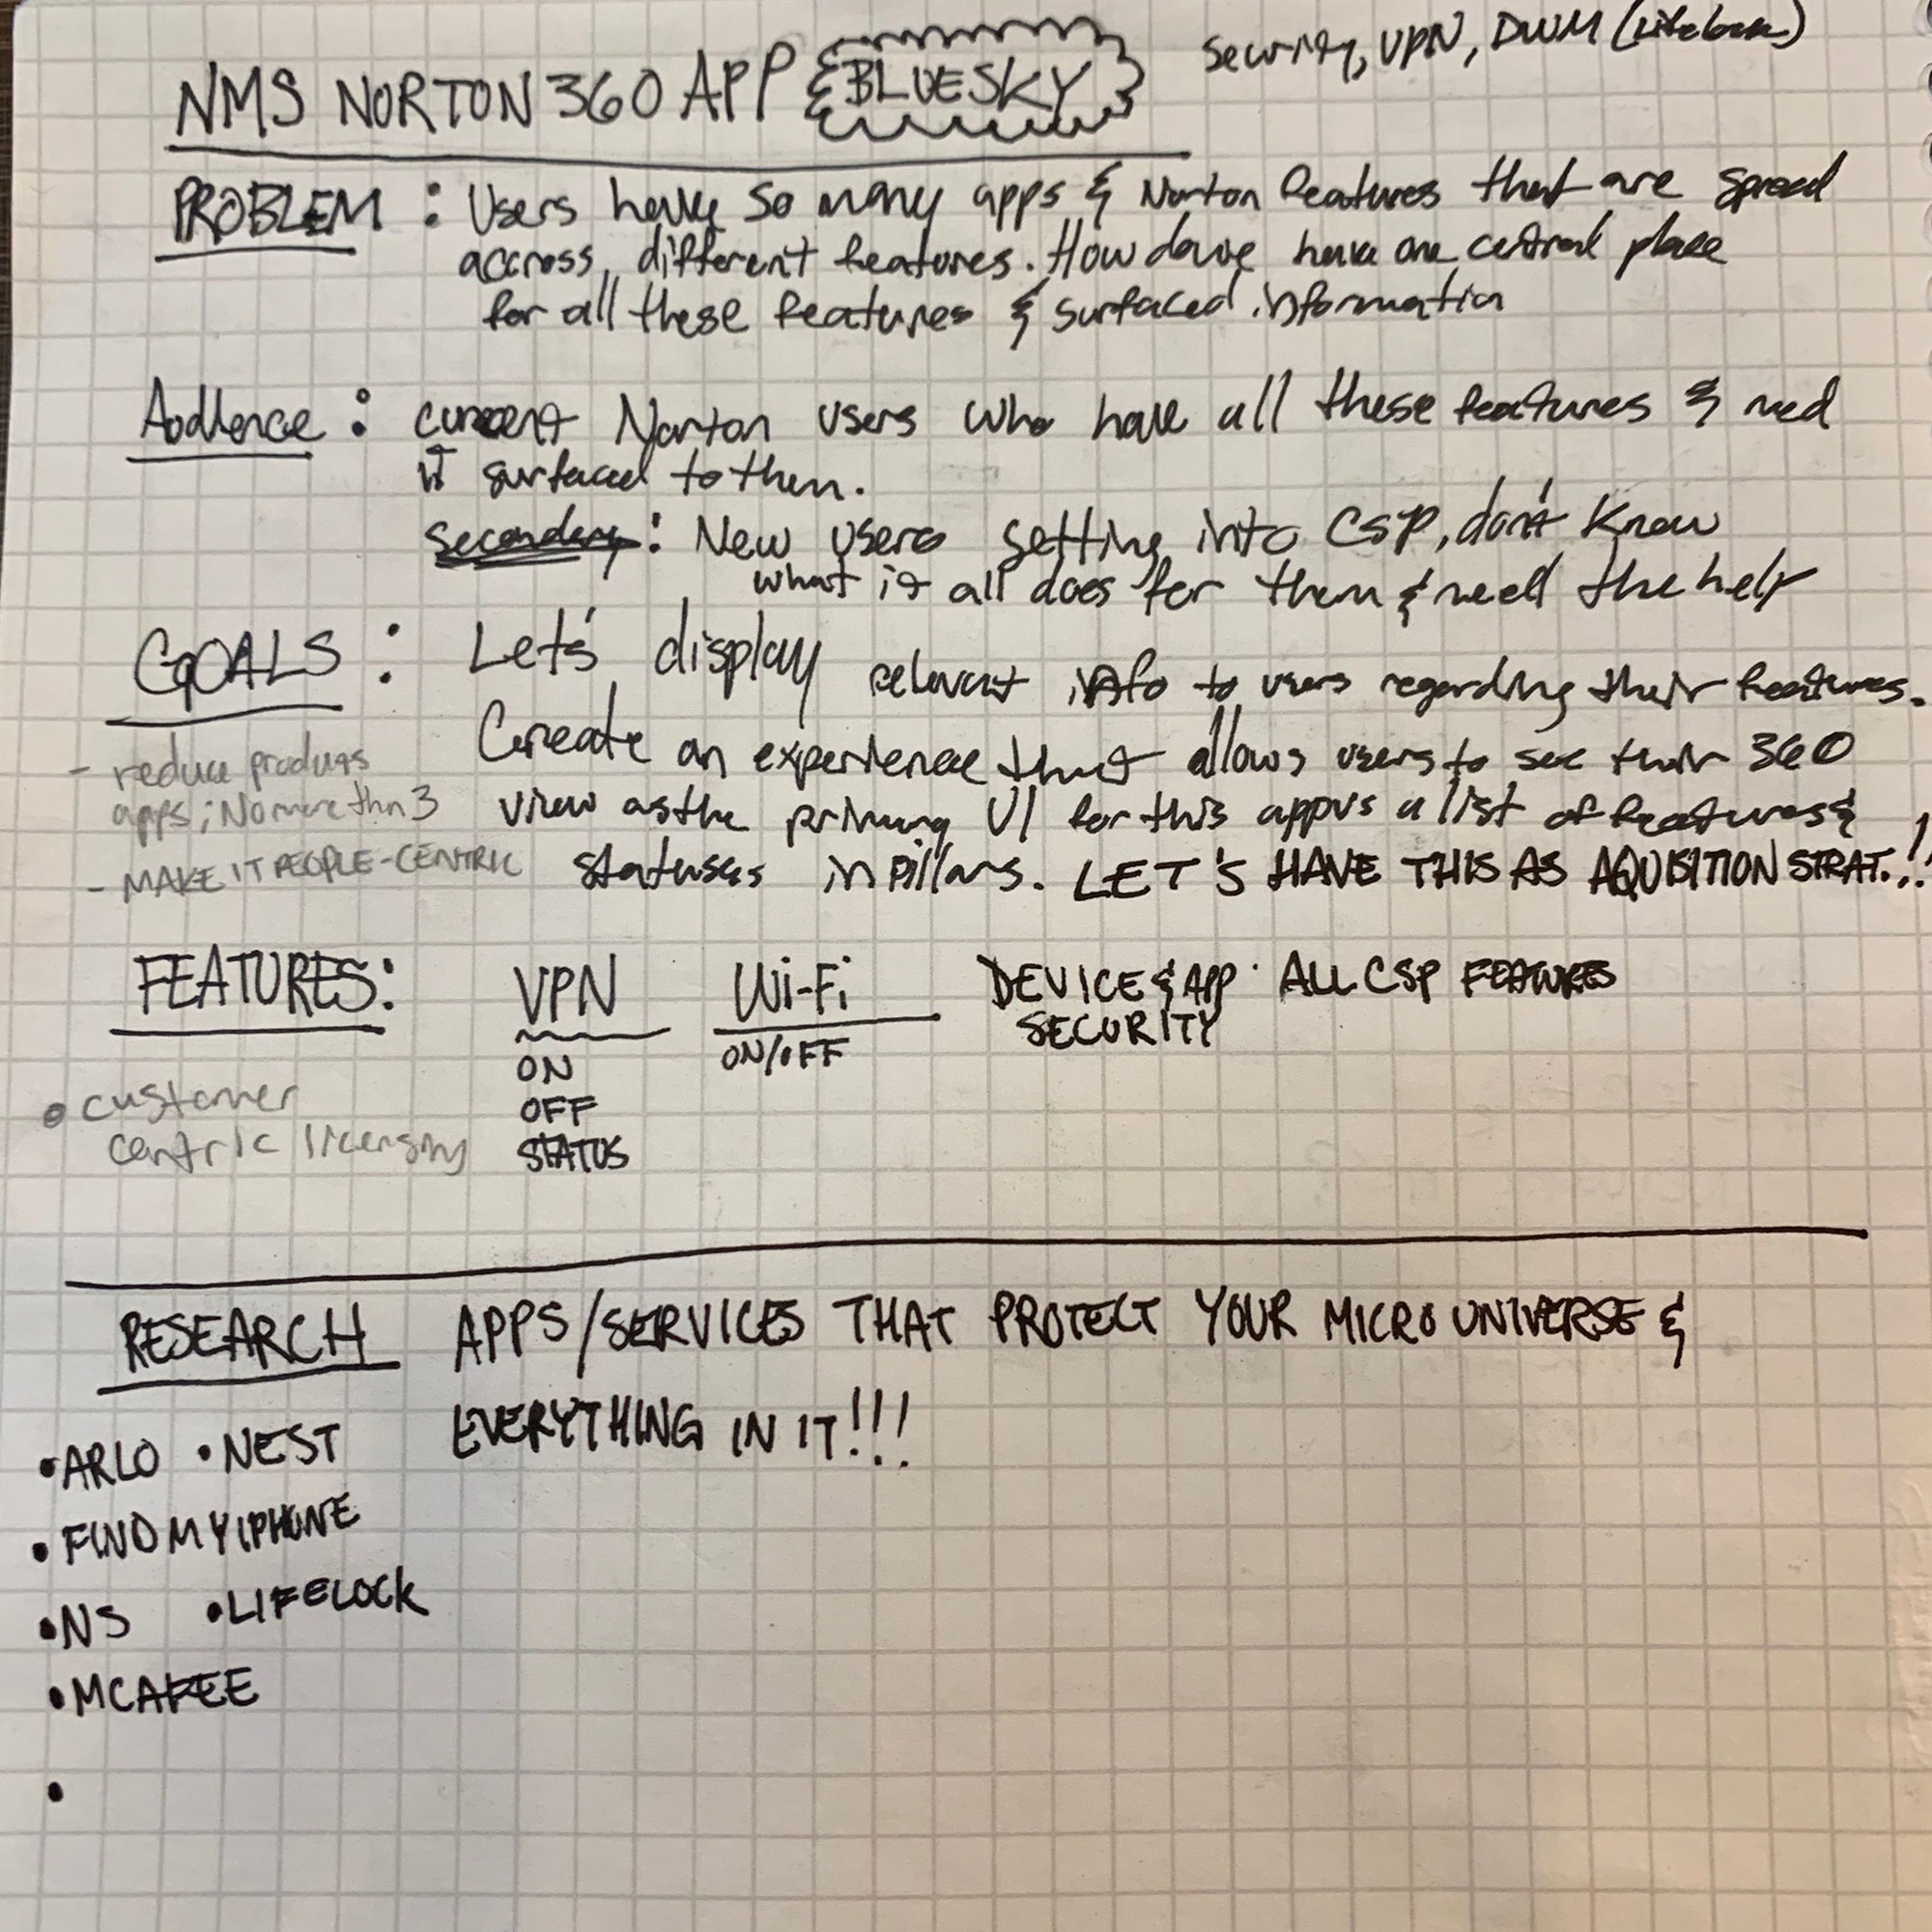 NMS NORTON 360 APP BLUESKY
Security, VPN, DWM (Lifelock)
PROBLEM : Users have so many apps & Norton features that are spread
accross different features. How do we have one central place
for all these features & surfaced information
Audience : current Norton users who have all these features & need
it surfaced to them.
Secondary : New users getting into CSP, don't know
what it all does for them & need the help
GOALS : Let's display relevant info to users regarding their features.
Create an experience that allows users to see their 360
view as the primary UI for this app vs a list of features &
statuses in pillars. LET'S HAVE THIS AS AQUISITION STRAT.!!
- reduce products
apps; No more than 3
- MAKE IT PEOPLE-CENTRIC
FEATURES: VPN Wi-Fi DEVICE & APP ALL CSP FEATURES
SECURITY
ON ON/OFF
OFF
STATUS
• customer
centric licensing
RESEARCH APPS/SERVICES THAT PROTECT YOUR MICRO UNIVERSE &
EVERYTHING IN IT!!!
• ARLO • NEST
• FIND MY IPHONE
• NS • LIFELOCK
• MCAFEE
•